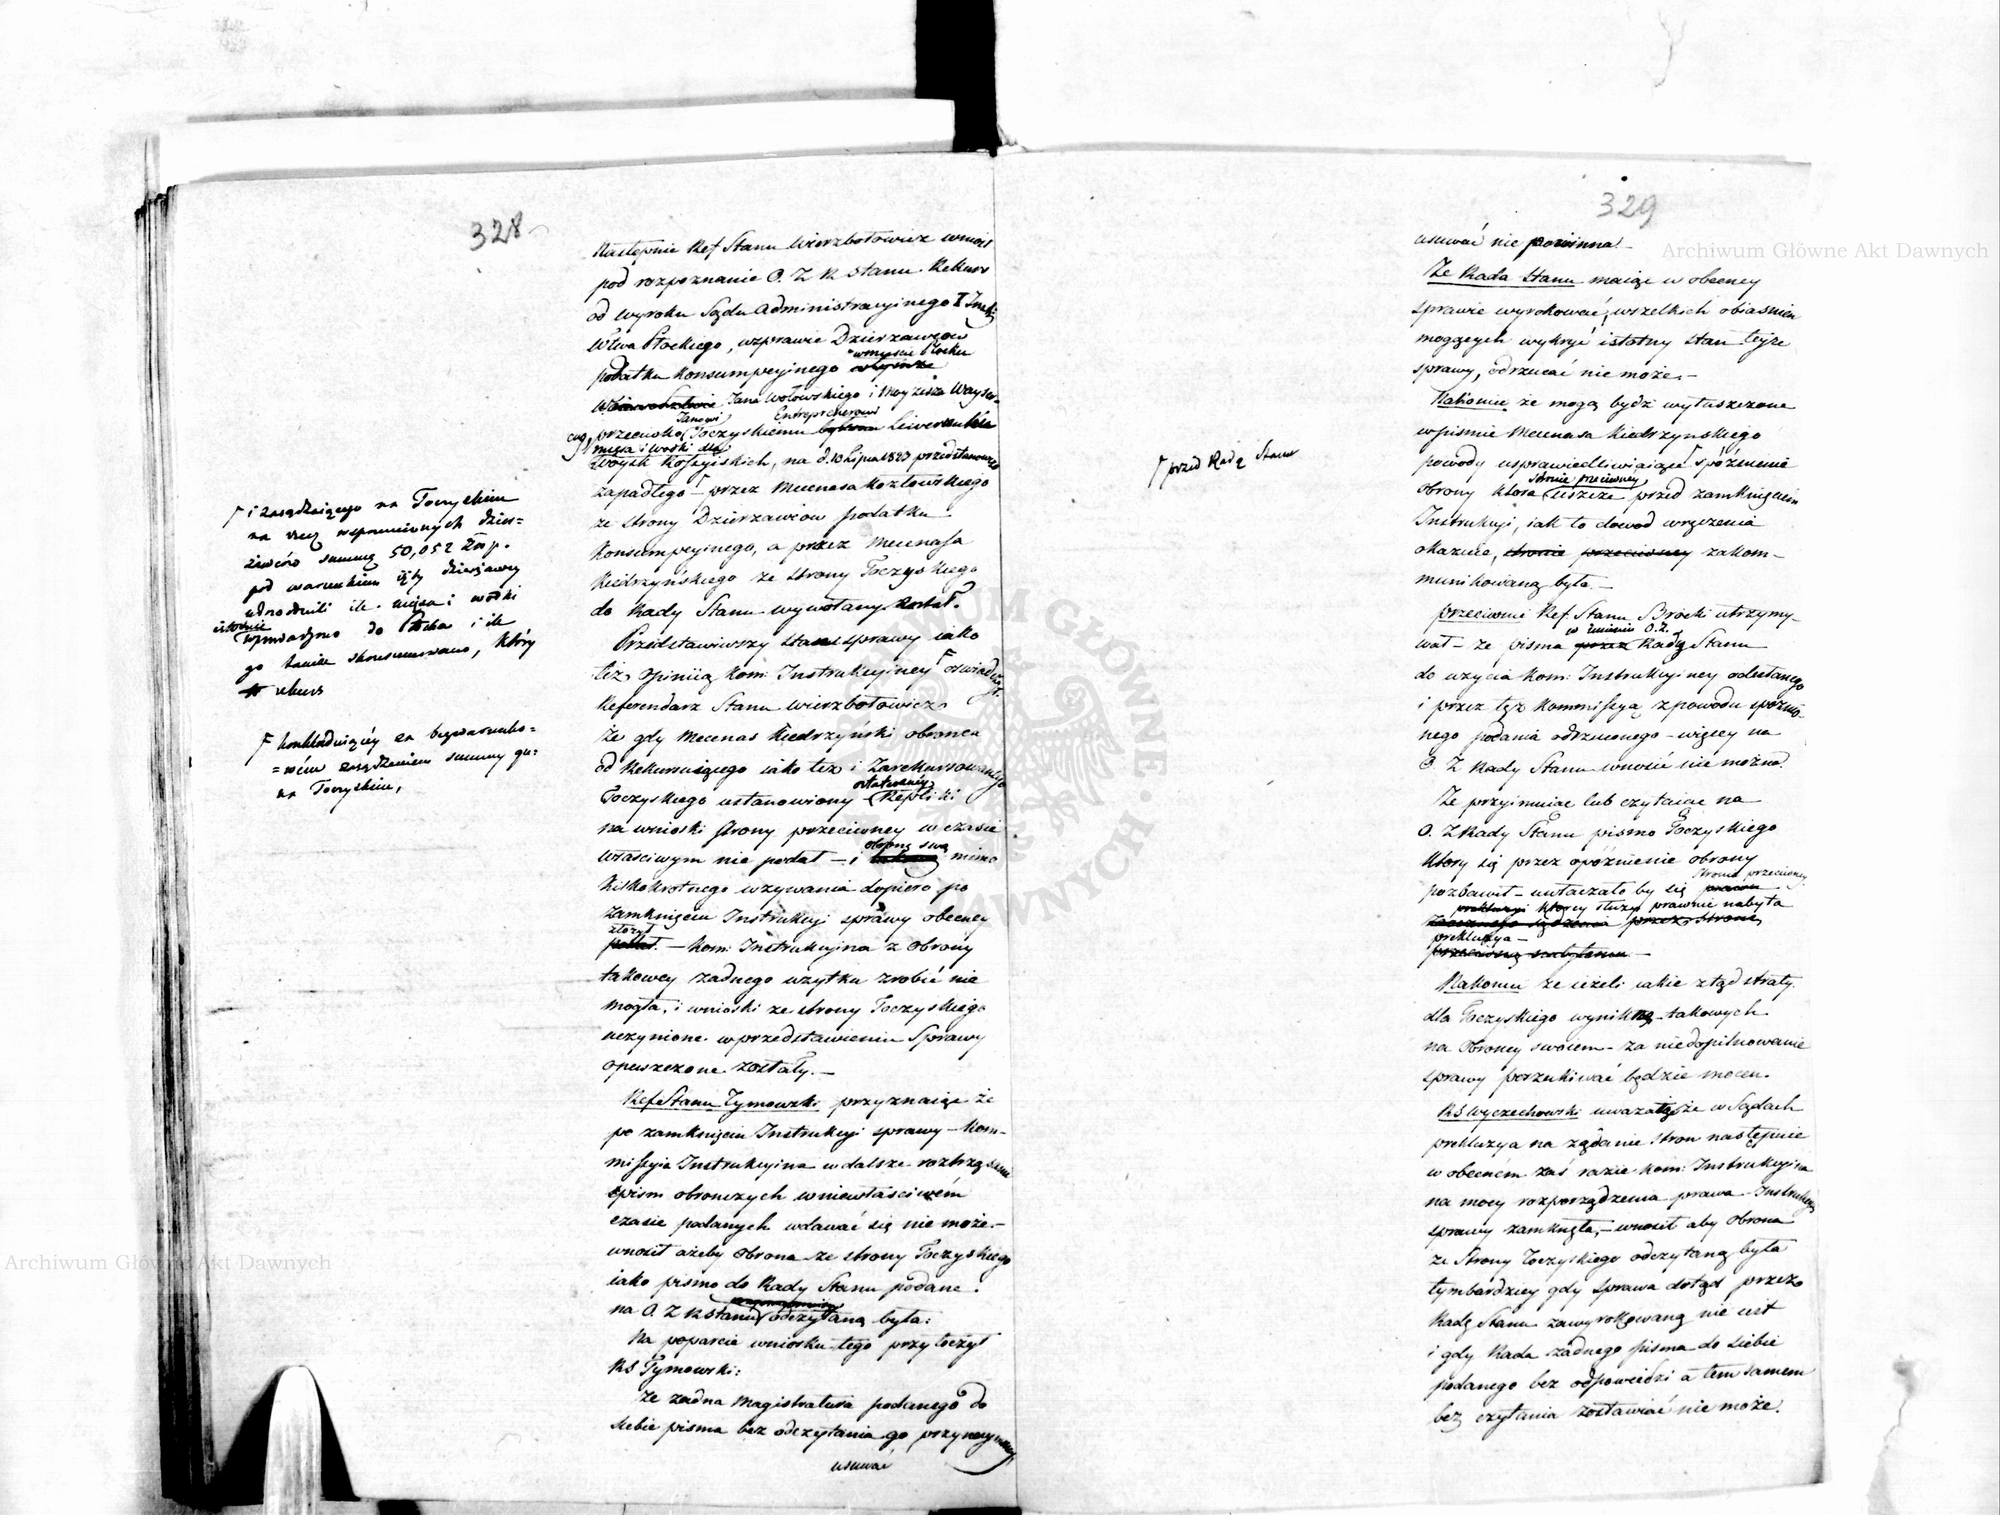 328
Następnie Ref Stanu Wierzbołowicz wniosł
pod rozpoznanie O. Z R Stanu Rekurs
od wyroku Sądu Administracyinego I Inst:
Wtwa Płockiego, wsprawie Dzierzawców
podatku Konsumpcyinego w mieście Płocku
Jana Wołowskiego i Moyżesza Wayser-
cug, przeciwko Janowi Toczyskiemu Entreprenerowi Liwerunku
mięsa i wódki dla
Woysk Rossyiskich, na d. 10 Lipca 1823 przedstanowczo
zapadłego przez Mecenasa Kozłowskiego
ze strony Dzierzawców podatku
Konsumpcyinego, a przez Mecenasa
Kiedrzyńskiego ze strony Toczyskiego
do Rady Stanu wywołany został.
Przedstawiwszy stan sprawy iako
też opiniią Kom: Instrukcyiney oswiadczył
Referendarz Stanu Wierzbołowicz
że gdy Mecenas Kiedrzyński obrońca
od Rekursuiącego iako też i Zarekursowanego
Toczyskiego ustanowiony ostateczney Repliki
na wnioski strony przeciwney w czasie
właściwym nie podał – i obronę swą mimo
kilkokrotnego wzywania dopiero po
zamknięciu Instrukcyi sprawy obecney
złożył – Kom: Instrukcyina z obrony
takowey żadnego użytku zrobić nie
mogła, i wnioski ze strony Toczyskiego
uczynione w przedstawieniu Sprawy
opuszczone zostały. –
Ref Stanu Tymowski przyznaiąc że
po zamknięciu Instrukcyi sprawy – Kom-
missyia Instrukcyina w dalsze roztrząsanie
pism obronczych w niewłaściwém
czasie podanych wdawać się nie może –
wnosił ażeby obrona ze strony Toczyskiego
iako pismo do Rady Stanu podane
na O. Z R Stanu odczytaną była:
Na poparcie wniosku tego przytoczył
RS Tymowski:
Że żadna Magistratura podanego do
siebie pisma bez odczytania go przynaymniey
usuwać
┌ i zasądzaiącego na Toczyskim
na rzecz wspomnionych dzier-
żawców summę 50,052 Złp.
pod warunkiem iżby dzierżawcy
udowodnili ile mięsa i wódki
istotnie wprowadzono do Płocka i ile
go tamże skonsumowano, który
rekurs
┌ konkluduiącéy za bezwarunko-
=wém zasądzeniem summy gu:
na Toczyskim,
329
usuwać nie powinna. –
Że Rada Stanu maiąc w obecney
sprawie wyrokować, wszelkich obiaśnień
mogących wykryć istotny stan teyże
sprawy, odrzucać nie może. –
Nakoniec że mogą bydź wyłuszczone
w piśmie Mecenasa Kiedrzyńskiego
powody usprawiedliwiaiące ┌ spóźnienie
obrony która stronie przeciwney ieszcze przed zamknięciem
Instrukcyi, iak to dowod wręczenia
okazuie, stronie przeciwney zakom-
munikowaną była. –
przeciwnie Ref. Stanu Brocki utrzymy-
wał – że pisma w Imieniu O.Z. Rady Stanu
do użycia Kom: Instrukcyiney odesłanego
i przez tęż Kommissyą z powodu spóźnio-
nego podania odrzuconego – więcey na
O. Z Rady Stanu wnosić nie można.
Że przyimuiąc lub czytaiąc na
O. Z Rady Stanu pismo Toczyskiego
który się przez opóźnienie obrony
pozbawił – uwłaczało by się stronie przeciwney
którey służy prawnie nabyta
prekluzya –
Nakoniec że ieżeli iakie ztąd straty
dla Toczyskiego wynikną – takowych
na obrońcy swoiem – za niedopilnowanie
sprawy poszukiwać będzie mocen.
RS Wyczechowski uważaiąc że w Sądach
prekluzya na żądanie stron następuie
w obecném zaś razie Kom: Instrukcyina
na mocy rozporządzenia prawa – Instrukcyę
sprawy zamknęła, – wnosił aby obrona
ze Strony Toczyskiego odczytaną była
tymbardziey gdy sprawa dotąd przez
Radę Stanu zawyrokowaną nie iest
i gdy Rada żadnego pisma do siebie
podanego bez odpowiedzi a tem samem
bez czytania zostawiać nie może.
┌ przed Radą Stanu
Archiwum Główne Akt Dawnych
Archiwum Główne Akt Dawnych
ARCHIWUM GŁÓWNE AKT DAWNYCH